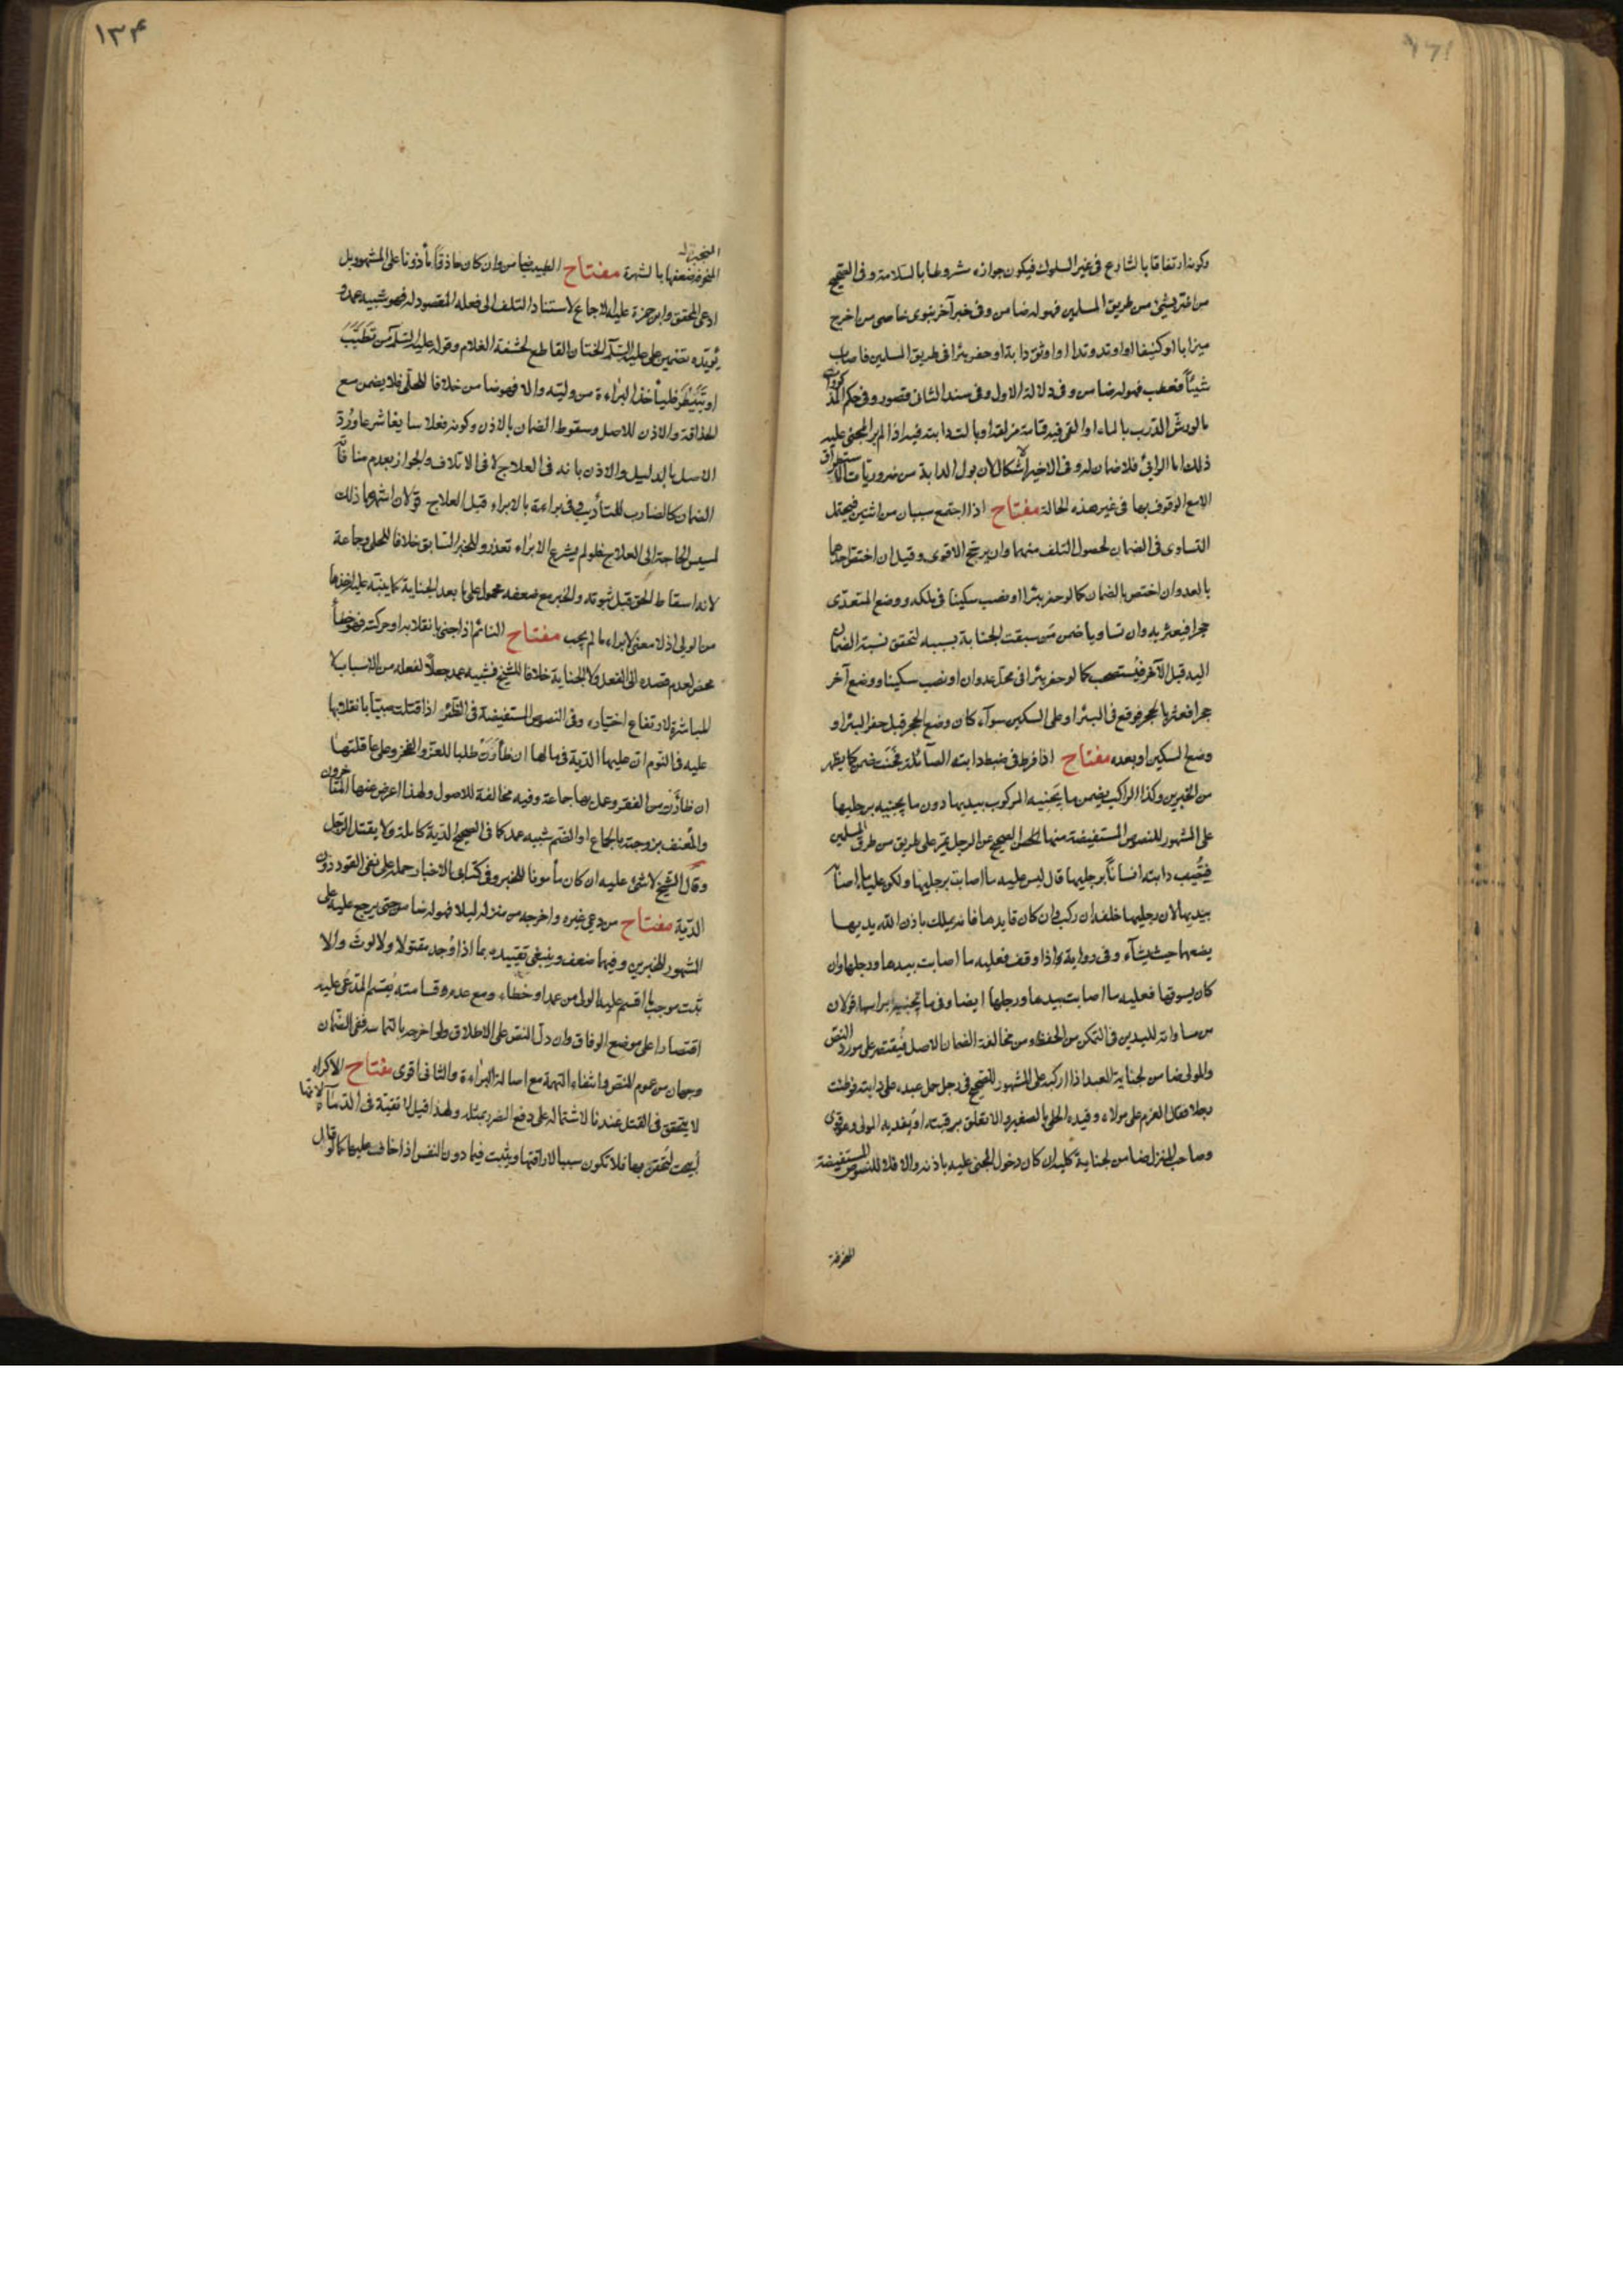 وكونه ارتفاقا بالشارع في غير السلوك فيكون جوازه مشروطا بالسلامة وفي الصحيح
من اضر بشئ من طريق المسلمين فهو له ضامن وفي خبر آخر نبوي خاصي من اخرج
ميزابا او كنيفا او اوتد وتدا او اوثق دابة او حفر بئرا في طريق المسلمين فاصاب
شيئا فعطب فهو له ضامن وفي دلالة الاول وفي سند الثاني قصور وفي حكم المذكورات
ما لو رش الدرب بالماء او القى فيه قمامة مزلقة او بالت دابته فيه اذا لم ير المجني عليه
ذلك اما الرائي فلا ضمان له وفي الاخير اشكال لان بول الدابة من ضروريات الاستطراق
الا مع الوقوف بها في غير هذه الحالة مفتاح اذا اجتمع سببان من اثنين فيحتمل
التساوي في الضمان لحصول التلف منهما وان يرجح الاقوى وقيل ان اختص احدهما
بالعدوان اختص بالضمان كما لو حفر بئرا او نصب سكينا في ملكه ووضع المتعدي
حجرا فيعثر به وان تساويا ضمن من سبقت الجناية بسببه لتحقق نسبة الضمان
اليه قبل الآخر فيستصحب كما لو حفر بئرا في محل عدوان او نصب سكينا ووضع آخر
حجرا فعثر بالحجر فوقع في البئر او على السكين سواء كان وضع الحجر قبل حفر البئر او
وضع السكين او بعده مفتاح اذا فرط في ضبط دابته الصائلة فجنت ضمن كما يظهر
من الخبرين وكذا الراكب يضمن ما يجنيه المركوب بيديها دون ما يجنيه برجليها
على المشهور للنصوص المستفيضة منها الصحيح عن الرجل يمر على طريق من طرق المسلمين
فيصيب دابته انسانا برجليها قال ليس عليه ما اصابت برجليها ولكن عليه ما اصابت
بيديها لان رجليها خلفه ان ركب وان كان قايدها فانه يملك باذن الله يديها
يضعهما حيث يشاء وفي رواية واذا وقف فعليه ما اصابت بيدها ورجلها وان
كان يسوقها فعليه ما اصابت بيدها ورجلها ايضا وفي ما تجنيه براسها قولان
من مساواته لليدين في التمكن من الحفظ ومن مخالفة الضمان للاصل فيقتصر على مورد النص
والمولى ضامن لجناية العبد اذا اركبه على المشهور للصحيح في رجل حمل عبده على دابته فوطئت
رجلا فقال الغرم على مولاه وقيده الحلي بالصغير والا تعلق برقبته او يفديه المولى وهو قوي
وصاحب المنزل ضامن لجناية كلبه ان كان دخول المجني عليه باذنه والا فلا للنصوص المستفيضة
المنجبر
ضعفها بالشهرة مفتاح الطبيب ضامن وان كان حاذقا مأذونا على المشهور بل
ادعى المحقق وابن حمزة عليه الاجماع لاستناد التلف الى فعله المقصود له فهو شبيه عمد و
يؤيده تضمين علي عليه السلام الختان القاطع لحشفة الغلام وقوله عليه السلام من تطبب
او تبيطر فليأخذ البراءة من وليه والا فهو ضامن خلافا للحلي فلا يضمن مع
الحذاقة والاذن للاصل وسقوط الضمان بالاذن وكونه فعلا سايغا شرعا ورد
الاصل بالدليل والاذن بانه في العلاج لا في الاتلاف والجواز بعدم منافاته
الضمان كالضارب للتأديب وفي براءته بالابراء قبل العلاج قولان اشهرهما ذلك
لمسيس الحاجة الى العلاج فلو لم يشرع الابراء تعذر وللخبر السابق خلافا للحلي وجماعة
لانه اسقاط الحق قبل ثبوته والخبر مع ضعفه محمول على ما بعد الجناية كما ينبه عليه اخذها
من الولي اذ لا معنى لابراء ما لم يجب مفتاح النائم اذا جنى بانقلابه او حركته فهو خطأ
محض لعدم قصده الى الفعل ولا الجناية خلافا للشيخ فشبيه عمد جعلا لفعله من الاسباب لا
المباشرة لارتفاع اختياره وفي النصوص المستفيضة في الظئر اذا قتلت صبيا بانقلابها
عليه في النوم ان عليها الدية في مالها ان ظاءرت طلبا للعز والفخر وعلى عاقلتها
ان ظاءرت من الفقر وعمل بها جماعة وفيه مخالفة للاصول ولهذا اعرض عنها المتأخرون
والمعنف بزوجته بالجماع او الضم شبيه عمد كما في الصحيح الدية كاملة ولا يقتل الرجل
وقال الشيخ لا شئ عليه ان كان مأمونا للخبر وفي كتابي الاخبار حمله على نفي القود دون
الدية مفتاح من دعى غيره واخرجه من منزله ليلا فهو له ضامن حتى يرجع عليه على
المشهور للخبرين وفيهما ضعف وينبغي تقييده بما اذا وجد مقتولا ولا لوث والا
ثبت موجب ما اقسم عليه الولي من عمد او خطاء ومع عدم قسامته يقسم المدعى عليه
اقتصارا على موضع الوفاق وان دل النص على الاطلاق ولو اخرجه بالتماسه ففي الضمان
وجهان من عموم النص وانتفاء التهمة مع اصالة البراءة والثاني اقوى مفتاح الاكراه
لا يتحقق في القتل عندنا لاشتماله على دفع الضرر بمثله ولهذا قيل لا تقية في الدماء لانها
ابيحت لتحقن بها فلا تكون سببا لاراقتها ويثبت فيما دون النفس اذا خاف عليها كما لو قال